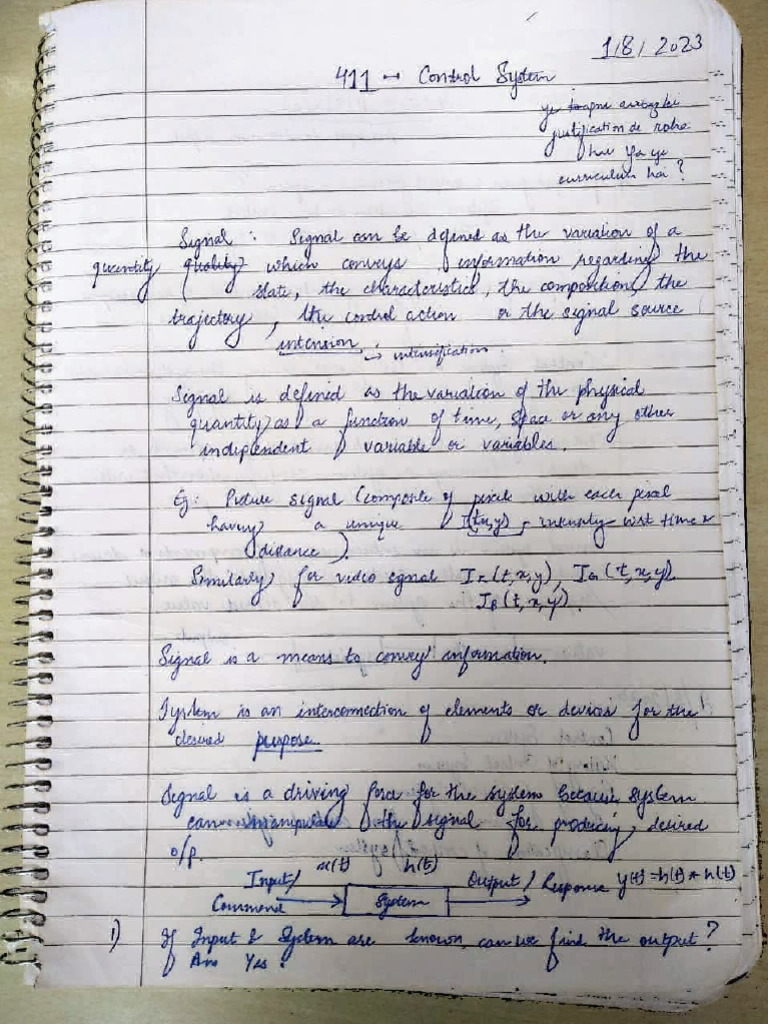 1/8/2023
411 → Control System
ye apne
justification de rahe
hai ya ye
curriculum hai ?
Signal : Signal can be defined as the variation of a
quantity quality which conveys information regarding the
state, the characteristics, the composition, the
trajectory, the control action or the signal source
intension → intensification
Signal is defined as the variation of the physical
quantity as a function of time, space or any other
independent variable or variables.
Eg: Picture signal (composite of pixels with each pixel
having a unique I(t,x,y) → intensity wrt time &
distance).
Similarly for video signal Ir(t,x,y), IG(t,x,y)
IB(t,x,y).
Signal is a means to convey information.
System is an interconnection of elements or devices for the
desired purpose.
Signal is a driving force for the system because system
can manipulate the signal for producing desired
o/p.
Input/ x(t) h(t) Output/ Response y(t) = h(t) * h(t)
Command System
1) If Input & System are known, can we find the output?
Ans Yes.